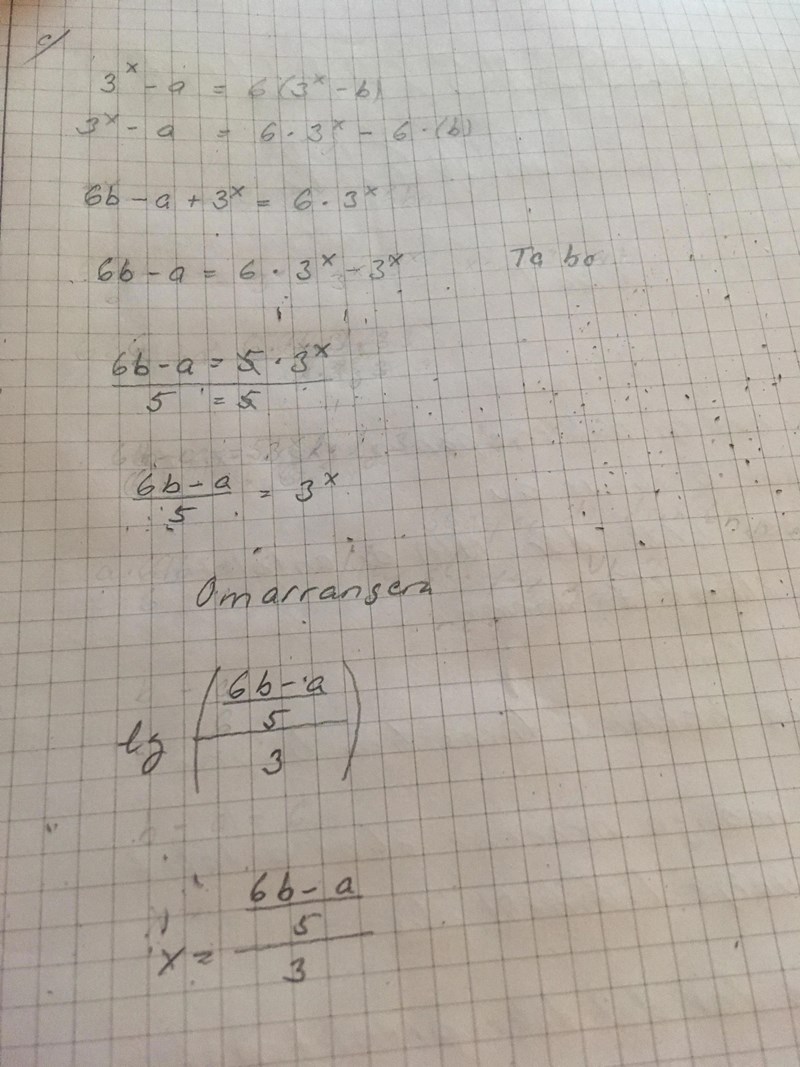 c/
3^x - a = 6(3^x - b)
3^x - a = 6 · 3^x - 6 · (b)
6b - a + 3^x = 6 · 3^x
6b - a = 6 · 3^x - 3^x
6b - a = 5 · 3^x
5 = 5
6b - a = 3^x
5
Omarrangera
6b - a
5
lg
3
6b - a
5
x =
3